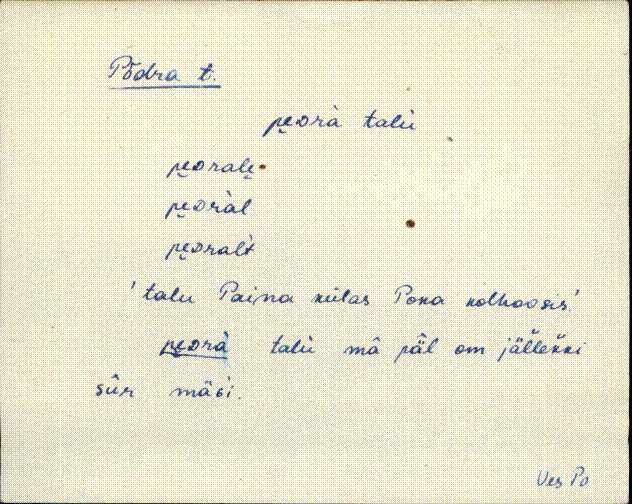 Põdra t.
pe̮ᴅrà talù
pe̮ᴅrale̮
pe̮ᴅràl
pe̮ᴅralt̀
'talu Paina külas Poka kolhoosis'.
pe̮ᴅrà talù mâ pǟl om jälleǩǩi
sûr mäɢi.
Ves Po